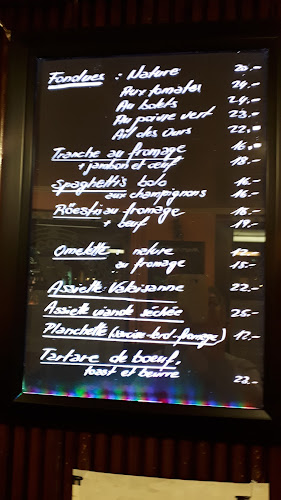 Fondues : Nature 20.-
Aux tomates 24.-
Au bolets 24.-
Au poivre vert 23.-
Ail des Ours 22.-
Tranche au fromage 16.-
+ jambon et œuf 18.-
Spaghettis bolo 16.-
aux champignons 16.-
Röesti au fromage
+ œuf 19.-
Omelette nature 12.-
au fromage 15.-
Assiette Valaisanne 22.-
Assiette viande séchée 25.-
Planchette (saucisse-lard-fromage) 12.-
Tartare de boeuf,
toast et beurre 22.-